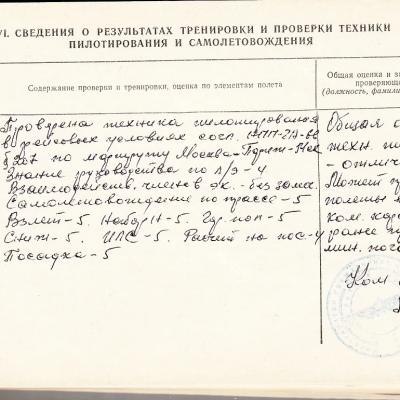 VI. СВЕДЕНИЯ О РЕЗУЛЬТАТАХ ТРЕНИРОВКИ И ПРОВЕРКИ ТЕХНИКИ
ПИЛОТИРОВАНИЯ И САМОЛЕТОВОЖДЕНИЯ
Содержание проверки и тренировки, оценка по элементам полета
Общая оценка и за
проверяющег
(должность, фамили
Проверена техника пилотирования
в рейсовых условиях согл.
по маршруту Москва-Париж-
Знание руководства по л/э-4
Взаимодейств. членов эк.-без замеч.
Самолетовождение по трассе-5
Взлет-5. Набор Н-5. Гор. пол-5
Сниж-5. ИЛС-5. Расчет на пос.-4
Посадка-5
Общая о
техн. пи
- отлич
Может п
полеты
ком. кор
ранее
мин. пого
Ком